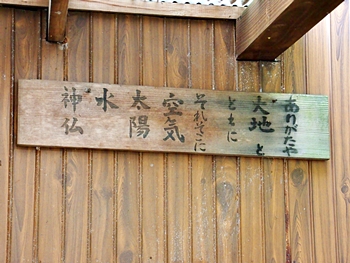 ありがたや
大地と
ともに
それぞれに
空気
太陽
水
神仏